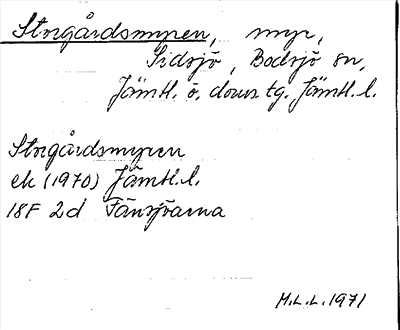 Storgårdsmyren, myr,
Sidsjö, Bodsjö sn,
Jämtl. ö. doms tg. Jämtl. l.
Storgårdsmyren
ek (1970) Jämtl. l.
18F 2d Fänsjöarna
M.L.L. 1971